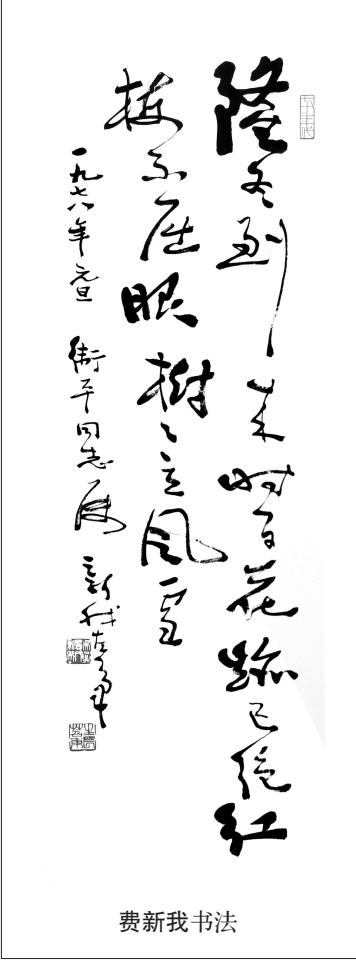 隆冬到来时百花跡已绝红
梅不屈服树々立风雪
一九七八年元旦 衛平同志属 新我左笔
费新我书法